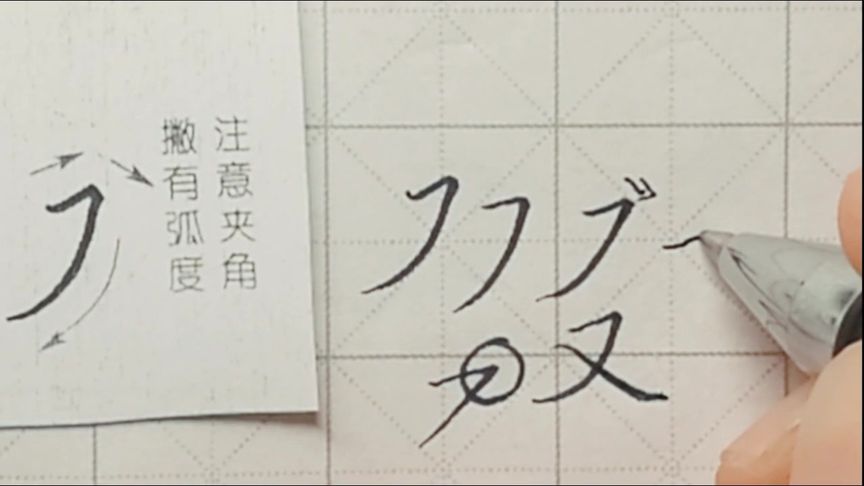 注意夹角
撇有弧度
フ
フフフ
又